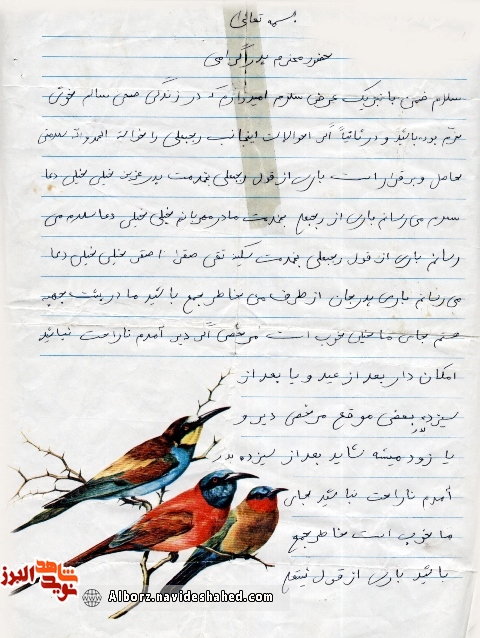 بسمه تعالی
حضور محترم پدر گرامی
سلام ضمن با تبریک عرض سلام امیدوارم که در زندگی صحی سالم خوش
خرم بوده باشید و در ثانیاً اگر احوالات اینجانب رجبعلی را بخواهید الحمدالله سلامتی
حاصل و برقرار است باری از قول رجبعلی بخدمت پدر عزیز خیلی خیلی دعا
سلام می رسانم باری از رجبعلی بخدمت مادر مهربانم خیلی خیلی دعا سلام می
رسانم باری از قول رجبعلی بخدمت سکینه تقی صغرا اصغر خیلی خیلی دعا
می رسانم باری پدر جان از طرف من بخاطر جمع باشید ما در پشت جبهه
هستم جای ما خیلی خوب است مرخصی اگر دیر آمدم ناراحت نباشید
امکان دارد بعد از عید و یا بعد از
سیزده بعضی موقع مرخصی دیر و
یا زود میشه شاید بعد از سیزده بدر
آمدم ناراحت نباشید جای
ما خوب است بخاطر جمع
باشید باری از قول
شاهد
نوید البرز
Alborz.navideshahed.com